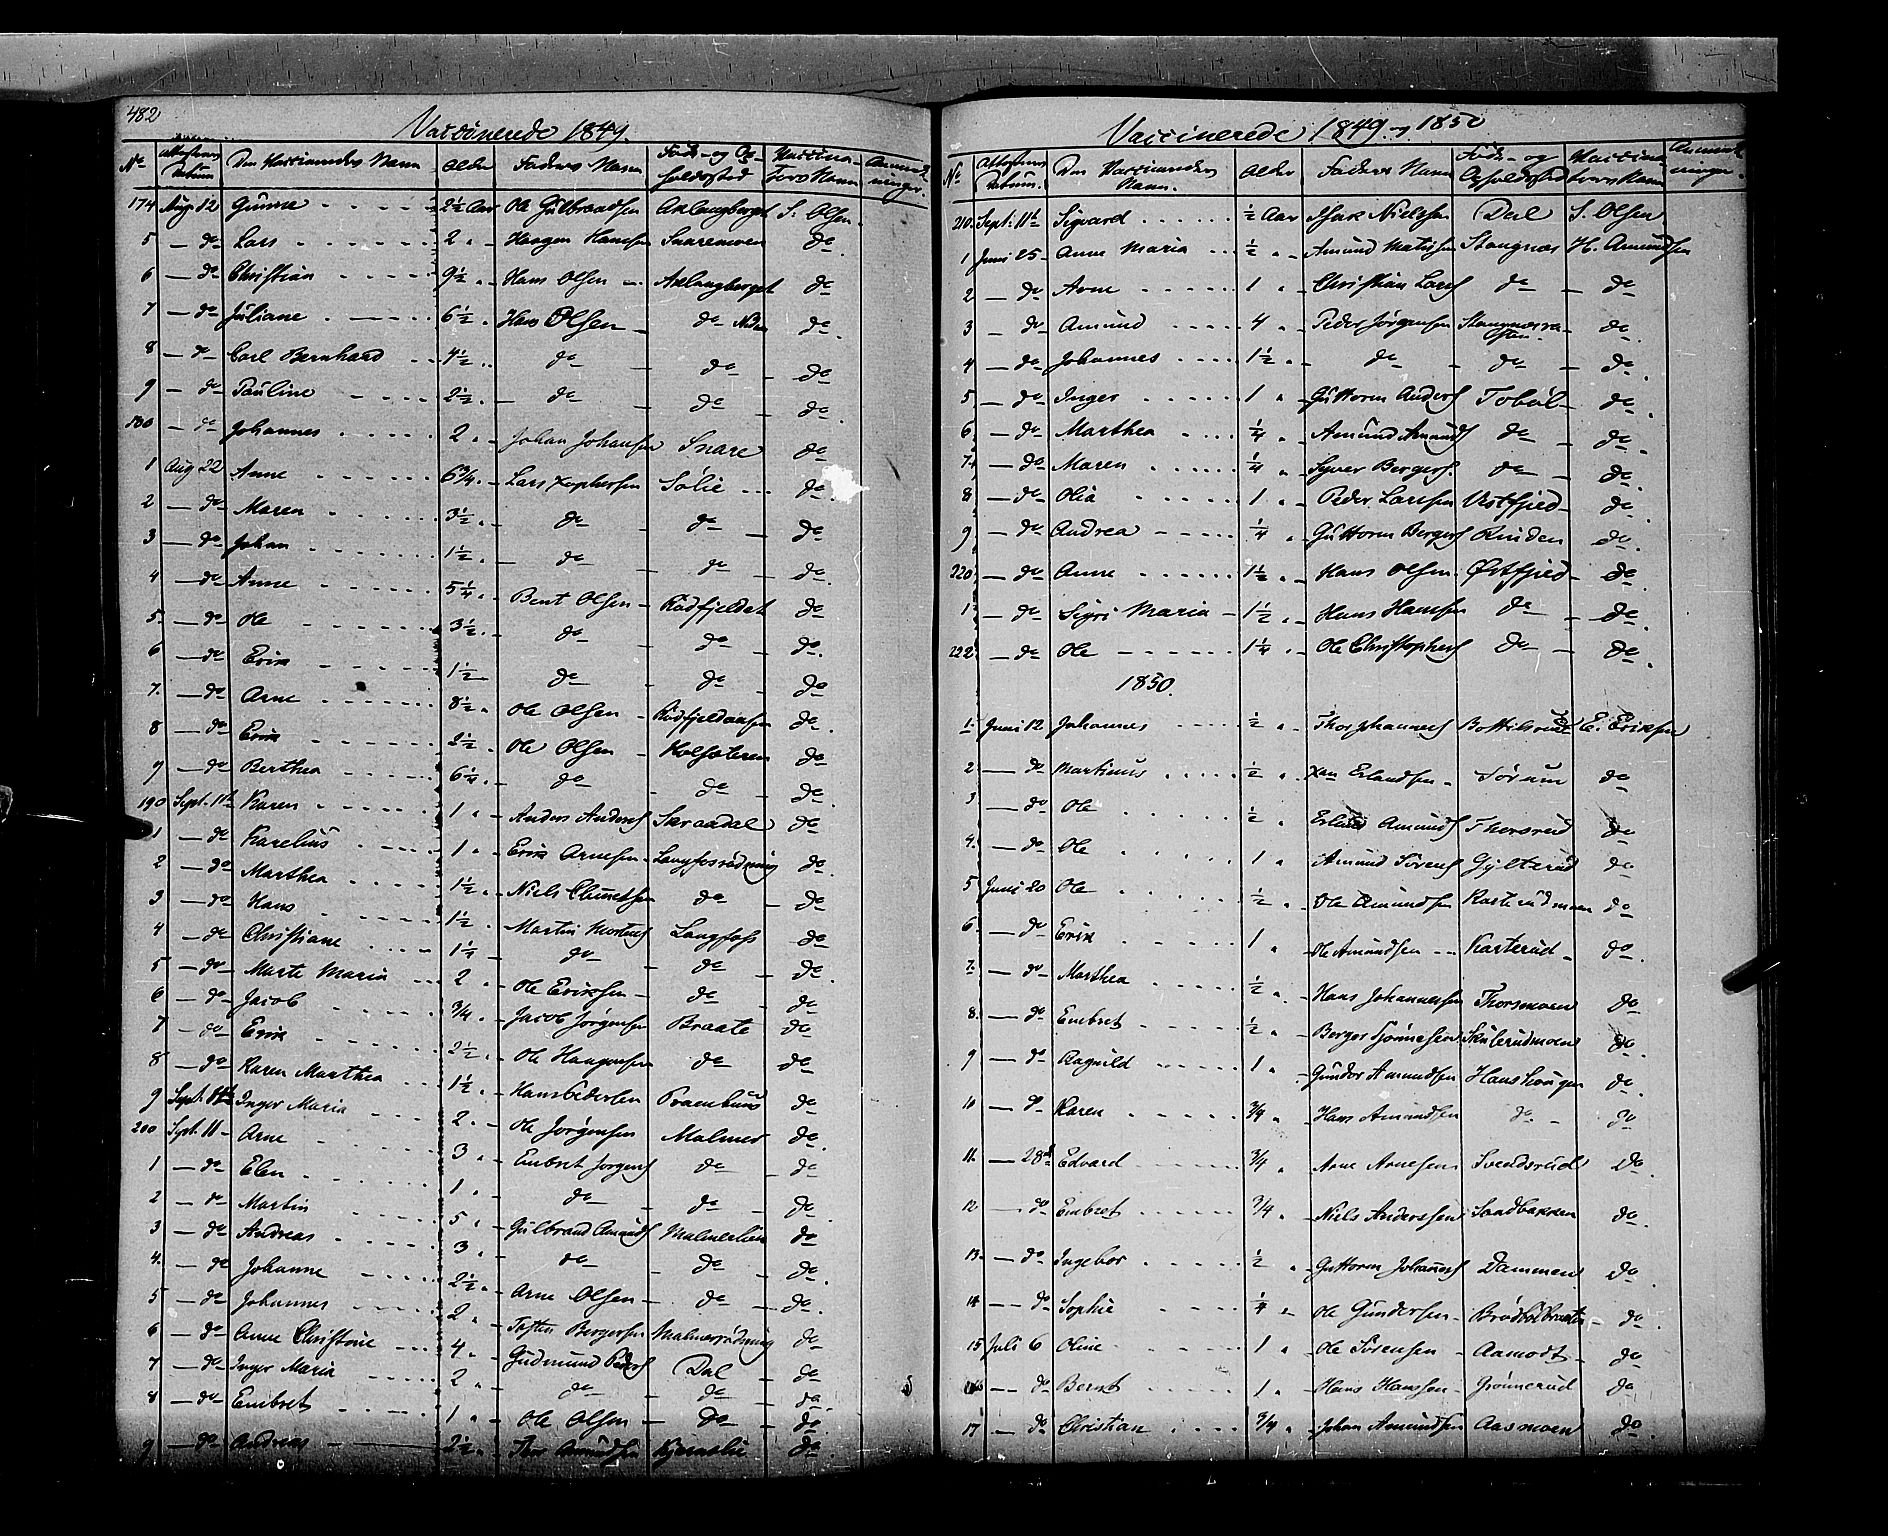 482
Vaccinerede 1849.
No Attestens Datum Den Vaccineredes Navn Alder Faders Navn Føde- og Opholdssted Vaccinateurs Navn Anmærkninger.
174 Aug. 12 Gunne 2½ Aar Ole Gulbrandsen Aslaugberget S. Olsen
5 — do Lars 2 " Haagen Hansen Snaremoen do
6 — do Christian 9½ " Hans Olsen Aslaugberget do
7 — do Juliane 6½ " Hans Olsen do Nedre do
8 — do Carl Bernhard 4½ " do do do
9 — do Pauline 2½ do do do
180 — do Johannes 2 " Johan Johansen Snare do
1 Aug 22 Anne 6¾ " Lars Sølie do
2 — do Maren 3½ " do do do
3 — do Johan 1½ " do do do
4 — do Anne 5¼ " Bent Olsen Rødfjeldet do
5 — do Ole 3½ " do do do
6 — do Erik 1½ do do do
7 — do Arne 8½ " Ole Olsen do
8 — do Erik 2½ " Ole Olsen Kolsæteren do
9 — do Berthea 6¼ " do do do
190 Sept. 11te Karen 1 " Anders Anders Skraadal do
1 — do Karelius 1 " Erik Arnesen Langfosrødning do
2 — do Marthea 1½ " Niels do do
3 — do Hans 1½ " Martin Mortens Langfoss do
4 — do Christiane 1½ " do do do
5 — do Marte Maria 2 " Ole Eriksen do do
6 — do Jacob ¾ " Jacob Jørgensen Braate do
7 — do Erik 2½ " Ole Haagensen do do
8 — do Karen Marthea 1½ " Hans Pedersen do
9 Sept. Inger Maria 2 " Ole Jørgensen Malmer do
200 Sept. 11 Arne 3 " Embret Jørgens do do
1 — do Elen 1 " do do do
2 — do Martin 5 " Gulbrand Amunds Malmerlien do
3 — do Andreas 3 " do do do
4 — do Johanne 2½ " Arne Olsen do do
5 — do Johannes 2 " Bergersen Malmerrødning do
6 — do Anne Christine 4 " Gudmund Peders Dal do
7 — do Inger Maria 2 " do do do
8 — do Embret 1 " Ole Olsen do do
9 — do Andreas 2½ " Amundsen do
Vaccinerede 1849 og 1850
No Attestens Datum. Den Vaccineredes Navn. Alder Faders Navn Føde- og Opholdssted Vaccinateurs Navn Anmærkninger.
210 Sept. 11te Sigvard ½ Aar Isak Nielssen Dal S. Olsen
1 Juni 25 Anne Maria ½ " Amund Mathisen Stangnæs H. Amundsen
2 — do Arne 1 " Christian Lars do do
3 — do Amund 4 " Peder Jørgensen do
4 — do Johannes 1½ " do do do
5 — do Inger 1 " Guttorm Anders Tobøl do
6 — do Marthea ¼ " Amund Amunds do do
7 — do Maren ¼ " Syver Bergers do do
8 — do Olia 1 " Peder Larssen Vestfjed do
9 — do Andrea ¼ " Guttorm Bergers Rinden do
220 — do Anne 1½ " Hans Olsen Østfjed do
1 — do Sigri Maria 1½ " Hans Hansen do do
222 — do Ole 1¼ " Ole Christophers do do
1850.
1 Juni 12 Johannes ½ " Thor Johannes E. Eriksen
2 — do Martinus ½ " Jan Erlandsen Sørum do
3 — do Ole ½ " Erland Amunds Thorsrud do
4 — do Ole 1 " Amund Sørens Gylterud do
5 Juni 20 Ole ½ " Ole Amundsen Karterudmoen do
6 — do Erik 1 " Ole Amundsen Karterud do
7 — do Marthea ½ " Hans Johannessen Thorsmoen do
8 — do Embret ½ " Berger Tjønnesen Skulerudmoen do
9 — do Ragnild 1 " Gunder Amundsen Hanshaugen do
10 — do Karen ¾ " Hans Amundsen do do
11 — 28de Edvard ¾ " Arne Arnesen Svendsrud do
12 — do Embret ¾ " Niels Anderssen Sandbakken do
13 — do Ingebor ½ " Guttorm Johannes Dammen do
14 — do Sophie ¼ " Ole Gundersen Brødbølbraaten do
15 Juli 6 Oline 1 " Ole Sørensen Aamodt do
16 — do Bernt 1 " Hans Hanssen Grønnerud do
17 — do Christian ¾ " Johan Amundsen Aasmoen do